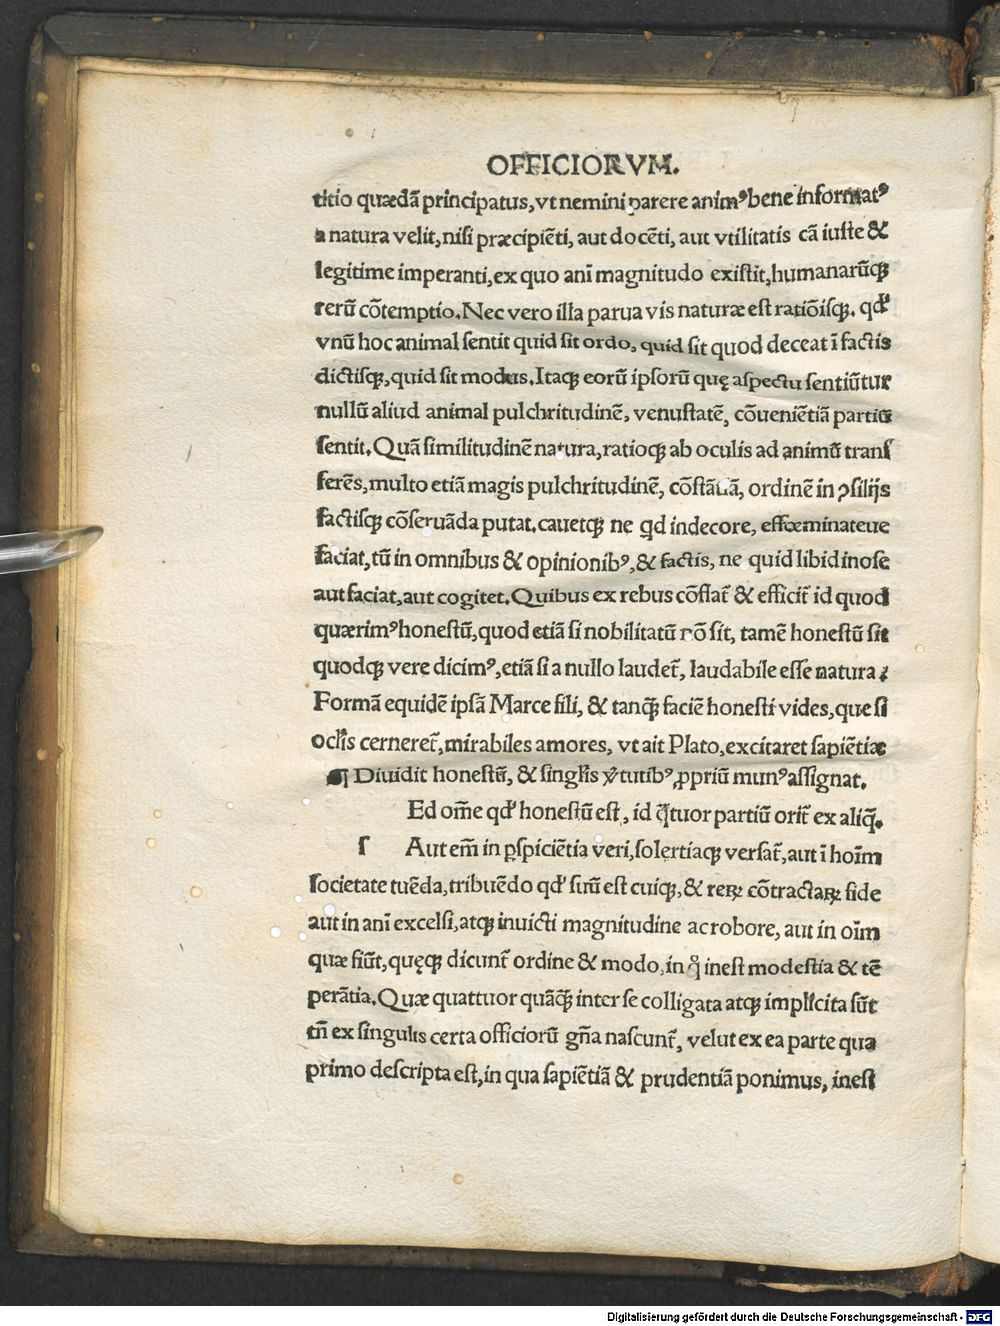 OFFICIORVM.
titio quædã principatus, vt nemini parere animꝰ bene informatꝰ
a natura velit, nisi præcipiẽti, aut docẽti, aut vtilitatis cã iuste &
legitime imperanti, ex quo ani̅ magnitudo existit, humanarũqꝫ
rerũ cõtemptio. Nec vero illa parua vis naturæ est ratiõisqꝫ. qđ
vnũ hoc animal sentit quid sit ordo, quid sit quod deceat ĩ factis
dictisqꝫ, quid sit modus. Itaqꝫ eorũ ipsorũ quę aspectu sentiũtur
nullũ aliud animal pulchritudinẽ, venustatẽ, cõueniẽtiã partiũ
sentit. Quã similitudinẽ natura, ratioqꝫ ab oculis ad animũ transſ
ferẽs, multo etiã magis pulchritudinẽ, cõstãtiã, ordinẽ in ꝯsilijs
factisqꝫ cõseruãda putat. cauetqꝫ ne qd indecore, effœminateue
faciat, tũ in omnibus & opinionibꝰ, & factis, ne quid libidinose
aut faciat, aut cogitet. Quibus ex rebus cõflat̃ & efficit̃ id quod
quærimꝰ honestũ, quod etiã si nobilitatũ nõ sit, tamẽ honestũ sit
quodqꝫ vere dicimꝰ, etiã si a nullo laudet̃, laudabile esse natura :
Formã equidẽ ipsã Marce fili, & tanqꝫ̃ faciẽ honesti vides, que si
ocl̓is cerneret̃, mirabiles amores, vt ait Plato, excitaret sapiẽtiæ
¶ Diuidit honestũ, & singl̓is v̓tutibꝰ, ꝓpriũ munꝰ assignat.
Ed om̃e qđ honestũ est, id q̃tuor partiũ orit̃ ex aliq̃.
s Aut em̃ in ꝑspiciẽtia veri, solertiaqꝫ versat̃, aut ĩ hoĩm
societate tuẽda, tribuẽdo qđ suũ est cuiqꝫ, & reꝝ cõtractaꝝ fide
aut in ani̅ excelsi, atqꝫ inuicti magnitudine ac robore, aut in oĩm
quæ fiũt, quęqꝫ dicunt̃ ordine & modo, in qͥ inest modestia & tẽ
perãtia. Quæ quattuor quãqꝫ̃ inter se colligata atqꝫ implicita sũt
tñ ex singulis certa officiorũ gñа nascunt̃, velut ex ea parte qua
primo descripta est, in qua sapiẽtiã & prudentiã ponimus, inest
Digitalisierung gefördert durch die Deutsche Forschungsgemeinschaft - DFG